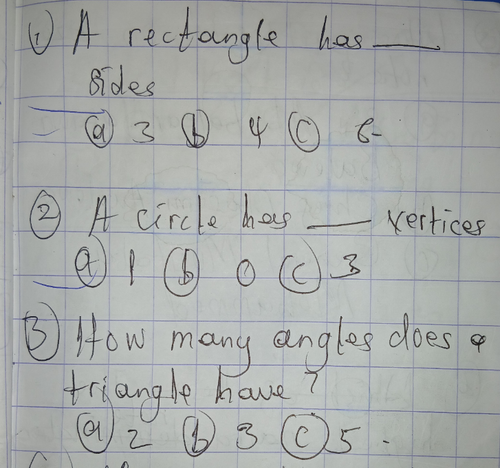 ① A rectangle has ___
sides
ⓐ 3 ⓑ 4 ⓒ 6
② A circle has ___ vertices
ⓐ 1 ⓑ 0 ⓒ 3
③ How many angles does a
triangle have?
ⓐ 2 ⓑ 3 ⓒ 5.